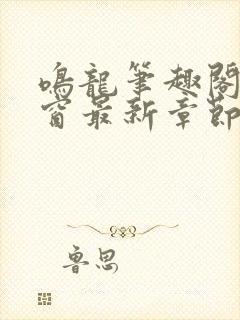 鳴龍筆趣閣
窗最新章節
魯思